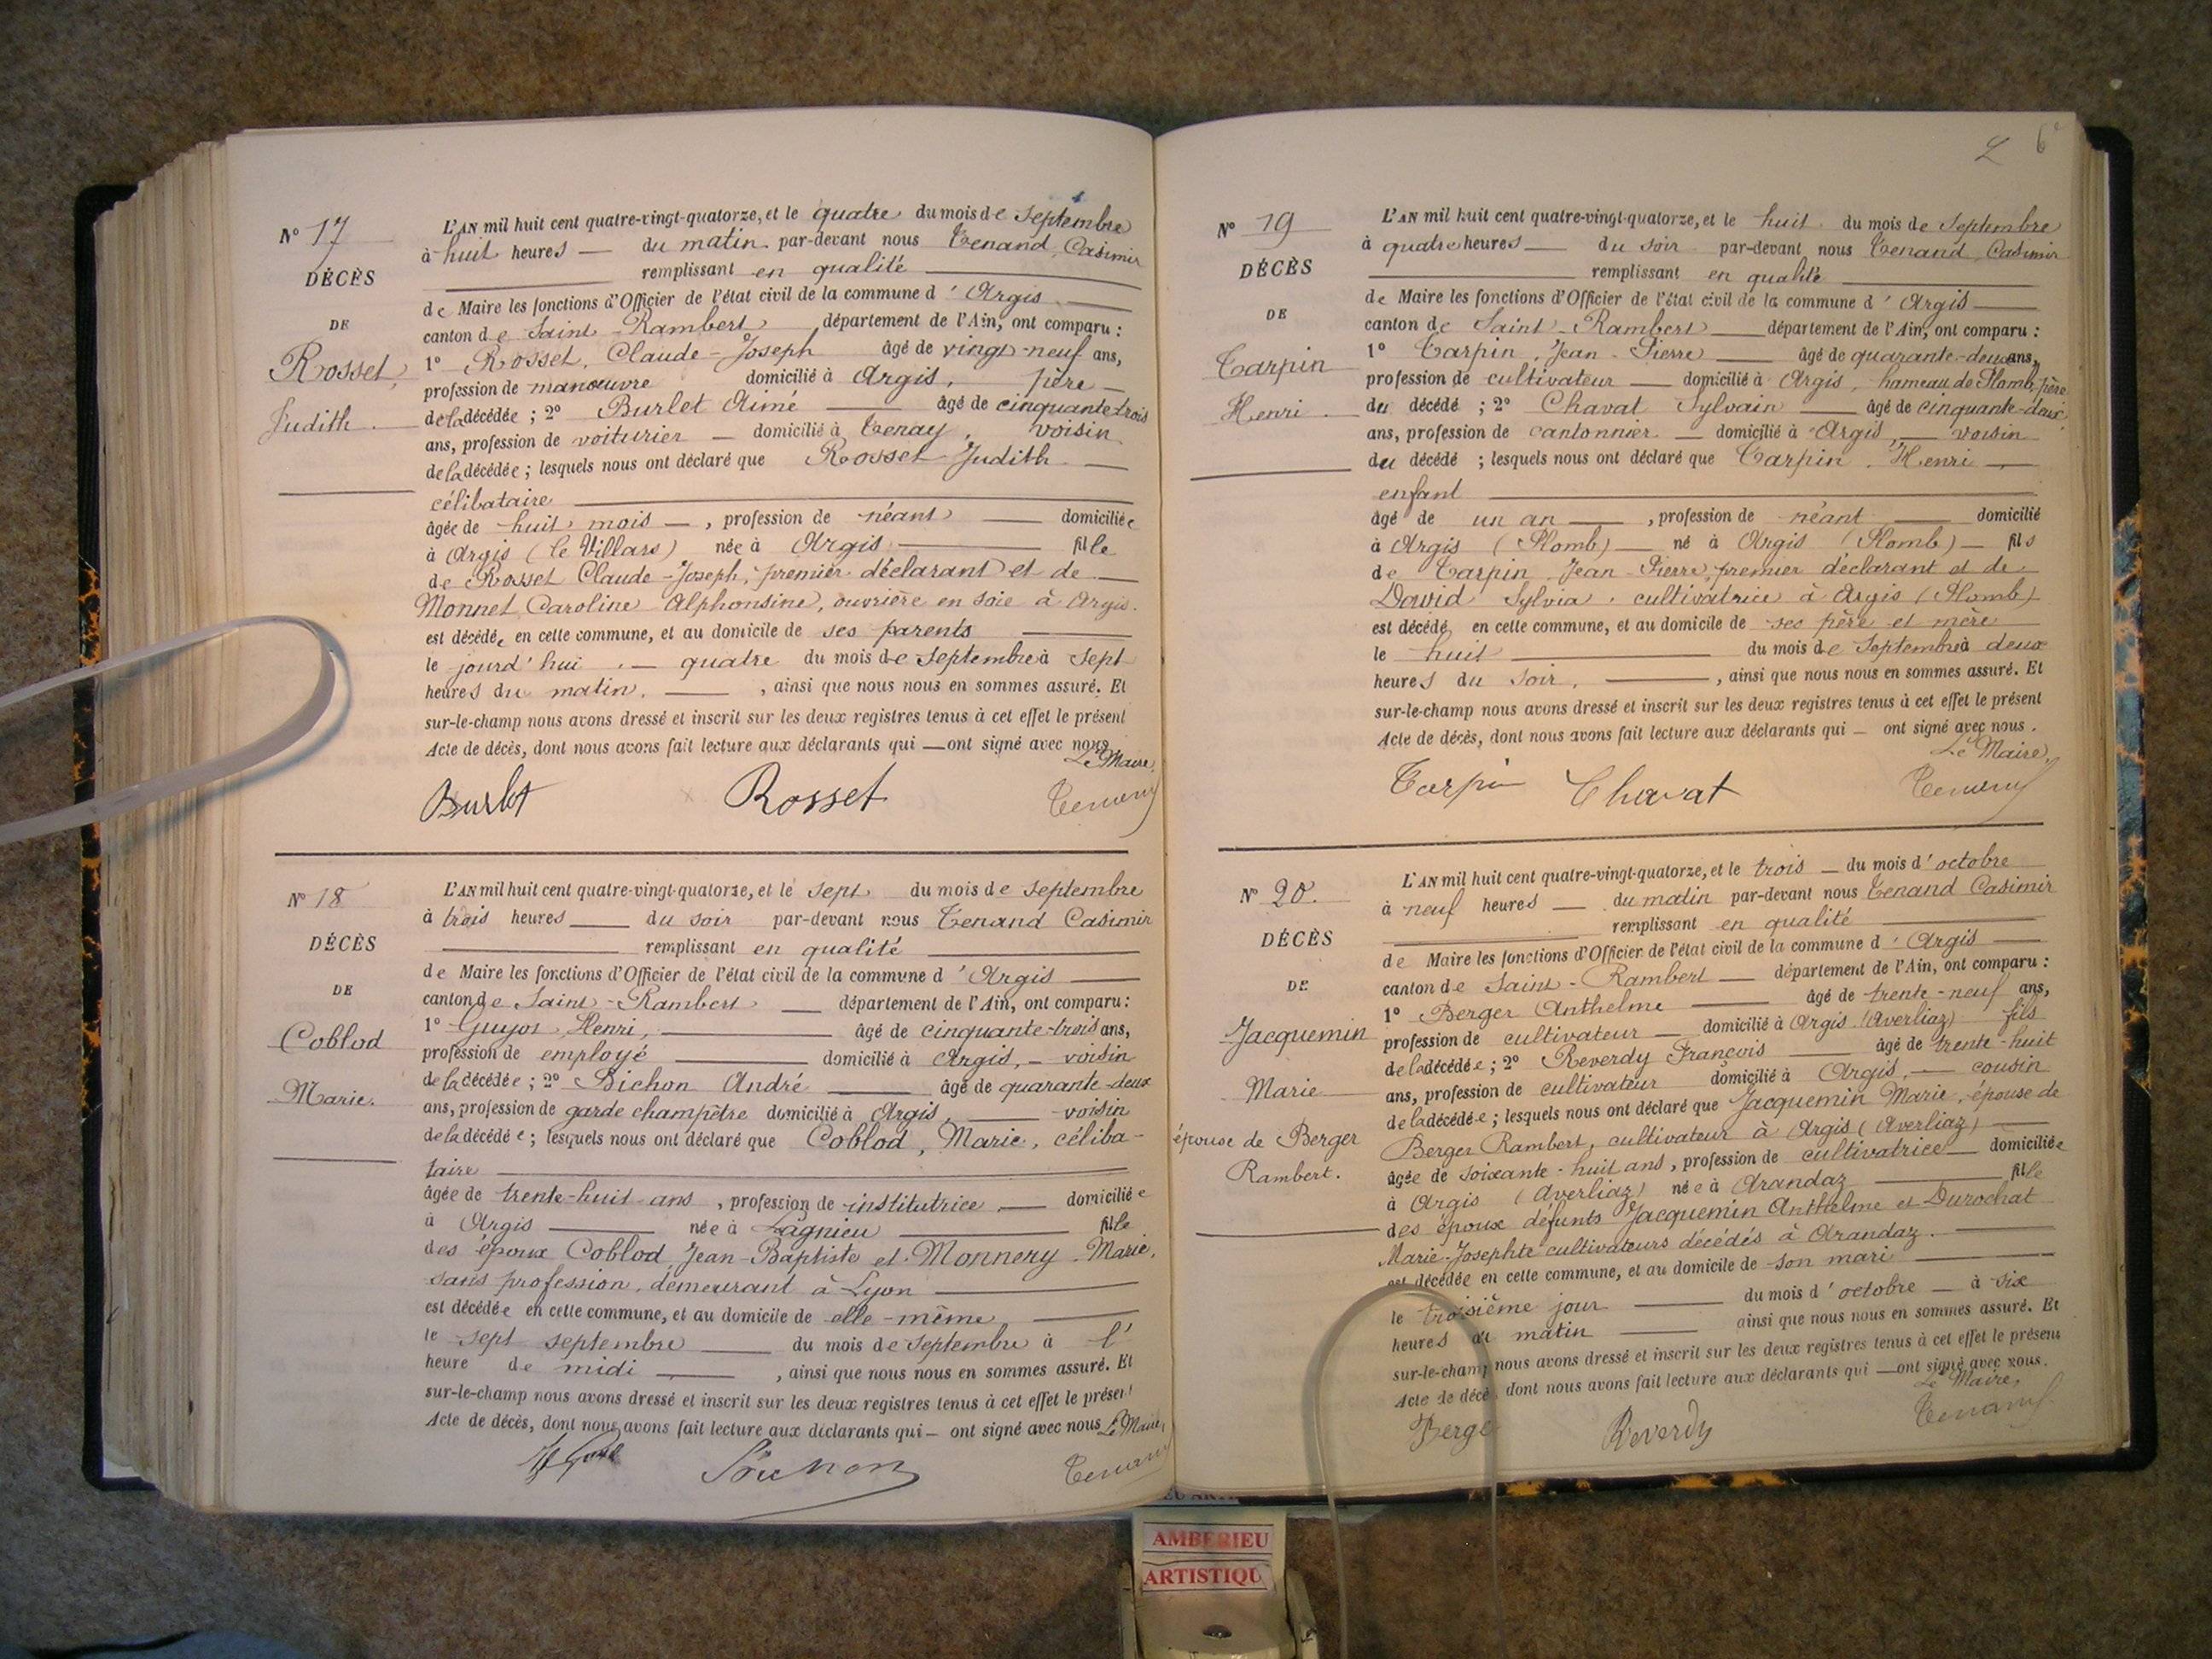 N° 17
DÉCÈS
DE
Rosset,
Judith.
L'AN mil huit cent quatre-vingt-quatorze, et le quatre du mois de septembre
à huit heures — du matin par-devant nous Tenand, Casimir
remplissant en qualité
de Maire les fonctions d'Officier de l'état civil de la commune d'Argis
canton de Saint-Rambert département de l'Ain, ont comparu :
1° Rosset, Claude-Joseph âgé de vingt-neuf ans,
profession de manœuvre domicilié à Argis, père —
de la décédée ; 2° Burlet Aimé — âgé de cinquante-trois
ans, profession de voiturier — domicilié à Tenay, voisin
de la décédée ; lesquels nous ont déclaré que Rosset Judith —
célibataire
âgée de huit mois —, profession de néant — domiciliée
à Argis (le Villars) née à Argis — fille
de Rosset Claude-Joseph, premier déclarant et de —
Monnet Caroline Alphonsine, ouvrière en soie à Argis.
est décédée en cette commune, et au domicile de ses parents
le jourd'hui — quatre du mois de septembre à sept
heures du matin, — , ainsi que nous nous en sommes assuré. Et
sur-le-champ nous avons dressé et inscrit sur les deux registres tenus à cet effet le présent
Acte de décès, dont nous avons fait lecture aux déclarants qui — ont signé avec nous.
Le Maire,
Burlet Rosset Tenand
N° 18
DÉCÈS
DE
Coblod
Marie.
L'AN mil huit cent quatre-vingt-quatorze, et le sept du mois de septembre
à trois heures — du soir par-devant nous Tenand Casimir
remplissant en qualité
de Maire les fonctions d'Officier de l'état civil de la commune d'Argis
canton de Saint-Rambert — département de l'Ain, ont comparu :
1° Guyot Henri, — âgé de cinquante-trois ans,
profession de employé — domicilié à Argis, — voisin
de la décédée ; 2° Bichon André — âgé de quarante-deux
ans, profession de garde champêtre domicilié à Argis, — voisin
de la décédée ; lesquels nous ont déclaré que Coblod, Marie, céliba-
taire
âgée de trente-huit ans, profession de institutrice — domiciliée
à Argis — née à Lagnieu — fille
des époux Coblod, Jean-Baptiste et Monnery Marie,
sans profession, demeurant à Lyon
est décédée en cette commune, et au domicile de elle-même
le sept septembre — du mois de septembre à l'
heure de midi — , ainsi que nous nous en sommes assuré. Et
sur-le-champ nous avons dressé et inscrit sur les deux registres tenus à cet effet le présent
Acte de décès, dont nous avons fait lecture aux déclarants qui — ont signé avec nous Le Maire,
Tenand
6
N° 19
DÉCÈS
DE
Tarpin
Henri
L'AN mil huit cent quatre-vingt-quatorze, et le huit du mois de septembre
à quatre heures — du soir par-devant nous Tenand, Casimir
remplissant en qualité
de Maire les fonctions d'Officier de l'état civil de la commune d'Argis
canton de Saint-Rambert — département de l'Ain, ont comparu :
1° Tarpin, Jean-Pierre — âgé de quarante-deux ans,
profession de cultivateur — domicilié à Argis, hameau de Plomb, père
du décédé ; 2° Chavat Sylvain — âgé de cinquante-deux
ans, profession de cantonnier — domicilié à Argis — voisin
du décédé ; lesquels nous ont déclaré que Tarpin, Henri —
enfant
âgé de un an —, profession de néant — domicilié
à Argis (Plomb) — né à Argis (Plomb) — fils
de Tarpin Jean-Pierre, premier déclarant et de
David Sylvia, cultivatrice à Argis (Plomb)
est décédé en cette commune, et au domicile de ses père et mère
le huit — du mois de septembre à deux
heures du soir, — , ainsi que nous nous en sommes assuré. Et
sur-le-champ nous avons dressé et inscrit sur les deux registres tenus à cet effet le présent
Acte de décès, dont nous avons fait lecture aux déclarants qui — ont signé avec nous.
Le Maire,
Tarpin Chavat Tenand
N° 20.
DÉCÈS
DE
Jacquemin
Marie
épouse de Berger
Rambert.
L'AN mil huit cent quatre-vingt-quatorze, et le trois — du mois d'octobre
à neuf heures — du matin par-devant nous Tenand Casimir
remplissant en qualité
de Maire les fonctions d'Officier de l'état civil de la commune d'Argis
canton de Saint-Rambert — département de l'Ain, ont comparu :
1° Berger Anthelme — âgé de trente-neuf ans,
profession de cultivateur — domicilié à Argis (Averliaz) fils
de la décédée ; 2° Reverdy François — âgé de trente-huit
ans, profession de cultivateur domicilié à Argis, — cousin
de la décédée ; lesquels nous ont déclaré que Jacquemin Marie, épouse de
Berger Rambert, cultivateur à Argis (Averliaz)
âgée de soixante-huit ans, profession de cultivatrice — domiciliée
à Argis (Averliaz) née à Arandaz — fille
des époux défunts Jacquemin Anthelme et Durochat
Marie-Josephte cultivateurs décédés à Arandaz.
est décédée en cette commune, et au domicile de son mari
le troisième jour — du mois d'octobre — à six
heures du matin — ainsi que nous nous en sommes assuré. Et
sur-le-champ nous avons dressé et inscrit sur les deux registres tenus à cet effet le présent
Acte de décès dont nous avons fait lecture aux déclarants qui — ont signé avec nous.
Le Maire,
Berger Reverdy Tenand
AMBERIEU
ARTISTIQU